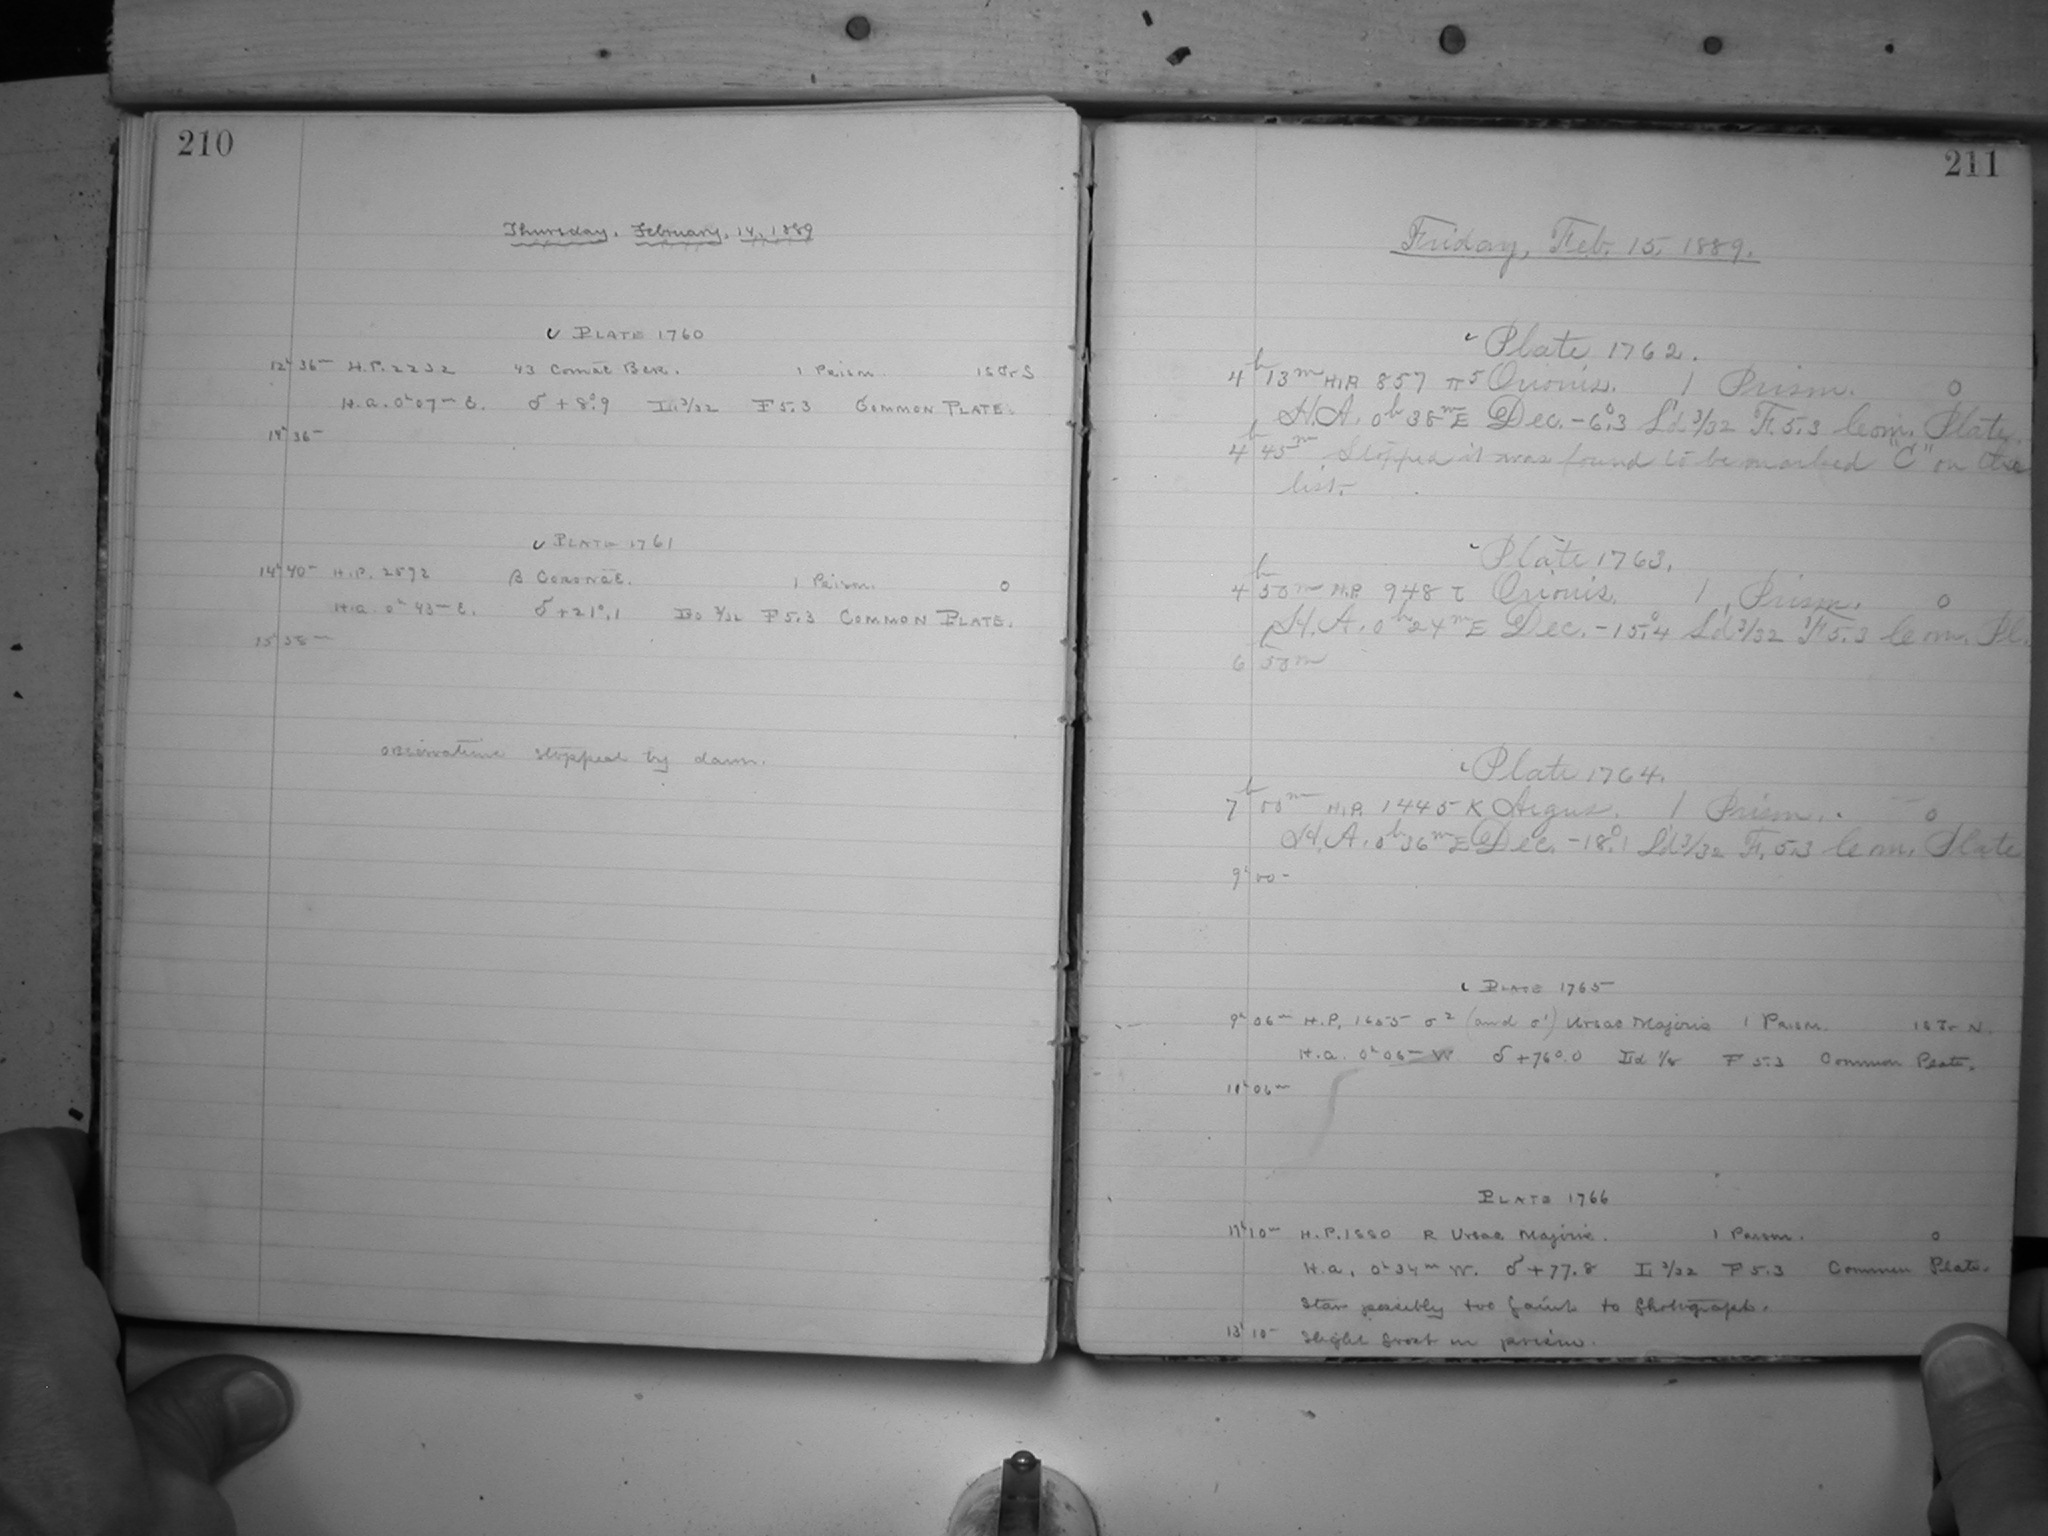 210
Thursday, February, 14, 1889
Plate 1760
12h 36m H.P. 2232 43 Comae Ber. 1 Prism
H.a. 0h 07m E. δ + 8°.9 3/32 F 5.3 Common Plate.
14h 36m
Plate 1761
14h 40m H.P. 2592 β Coronae. 1 Prism. 0
H.a. 0h 43m E. δ + 21°.1 3/32 F 5.3 Common Plate.
15h 38m
Observations stopped by dawn.
211
Friday, Feb. 15, 1889.
Plate 1762.
4h 13m H.P. 857 π5 Orionis. 1 Prism. 0
H.A. 0h 38m E Dec. -6°.3 Ld 3/32 F. 5.3 Com. Plate.
4h 45m Stopped it was found to be marked "C" on the
list.
Plate 1763.
4h 50m H.P. 948 τ Orionis. 1 Prism. 0
H.A. 0h 24m E Dec. -15°.4 Ld 3/32 F 5.3 Com. Pl.
6h 50m
Plate 1764.
7h 00m H.P. 1445 K Argus. 1 Prism. 0
H.A. 0h 36m E Dec. -18°.1 Ld 3/32 F. 5.3 Com. Plate
9h 00m
Plate 1765
9h 06m H.P. 1655 σ2 (and σ1) Ursae Majoris 1 Prism.
H.a. 0h 06m W δ + 76°.0 Ld 1/8 F 5.3 Common Plate.
06m
Plate 1766
10m H.P. 1880 R Ursae Majoris. 1 Prism. 0
H.a. 0h 34m W. δ + 77.8 3/32 F 5.3 Common Plate.
Star possibly too faint to photograph.
13h 10m Slight frost on prism.